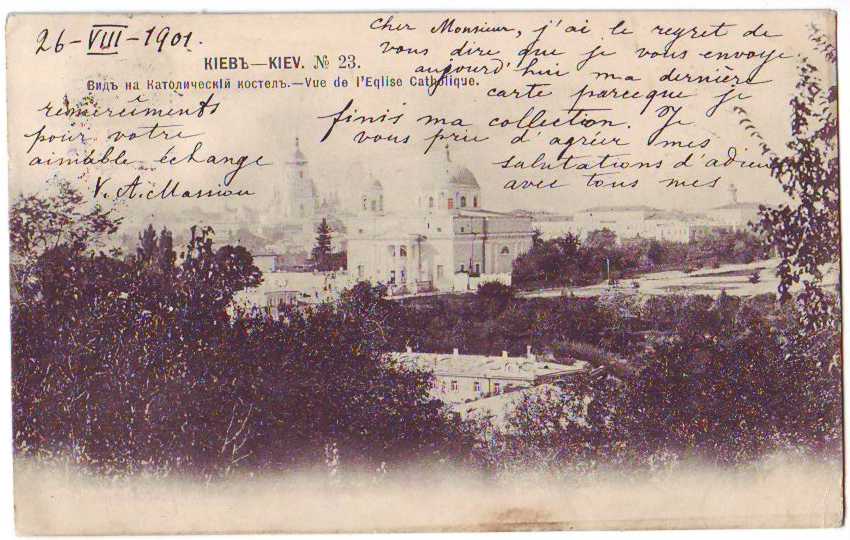 26-VIII-1901.
КІЕВЪ—KIEV. № 23.
Видъ на Католическій костелъ.—Vue de l'Eglise Catholique.
Cher Monsieur, j'ai le regret de
vous dire que je vous envoye
aujourd'hui ma dernière
carte parceque je
finis ma collection. Je
vous prie d'agréer mes
salutations d'adieu
avec tous mes
remerciments
pour votre
aimable échange
V. A. Massiou